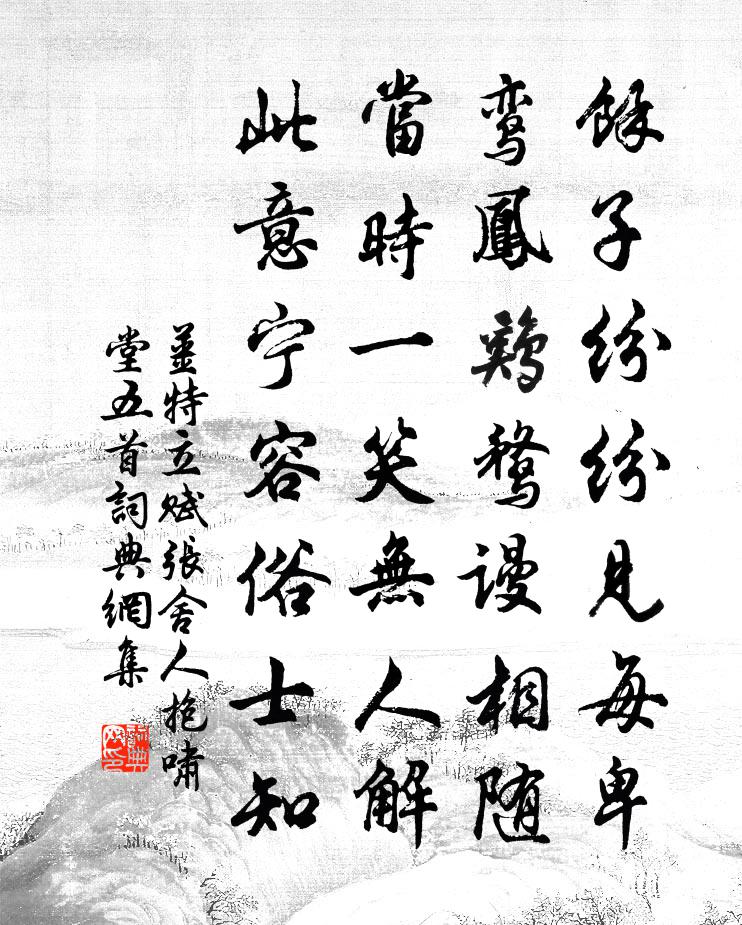 餘子紛紛見每卑
鸾鳳鷄鶩謾相随
當時一笑無人解
此意宁容俗士知
姜特立赋張舍人抱嘯
堂五首詞典網集